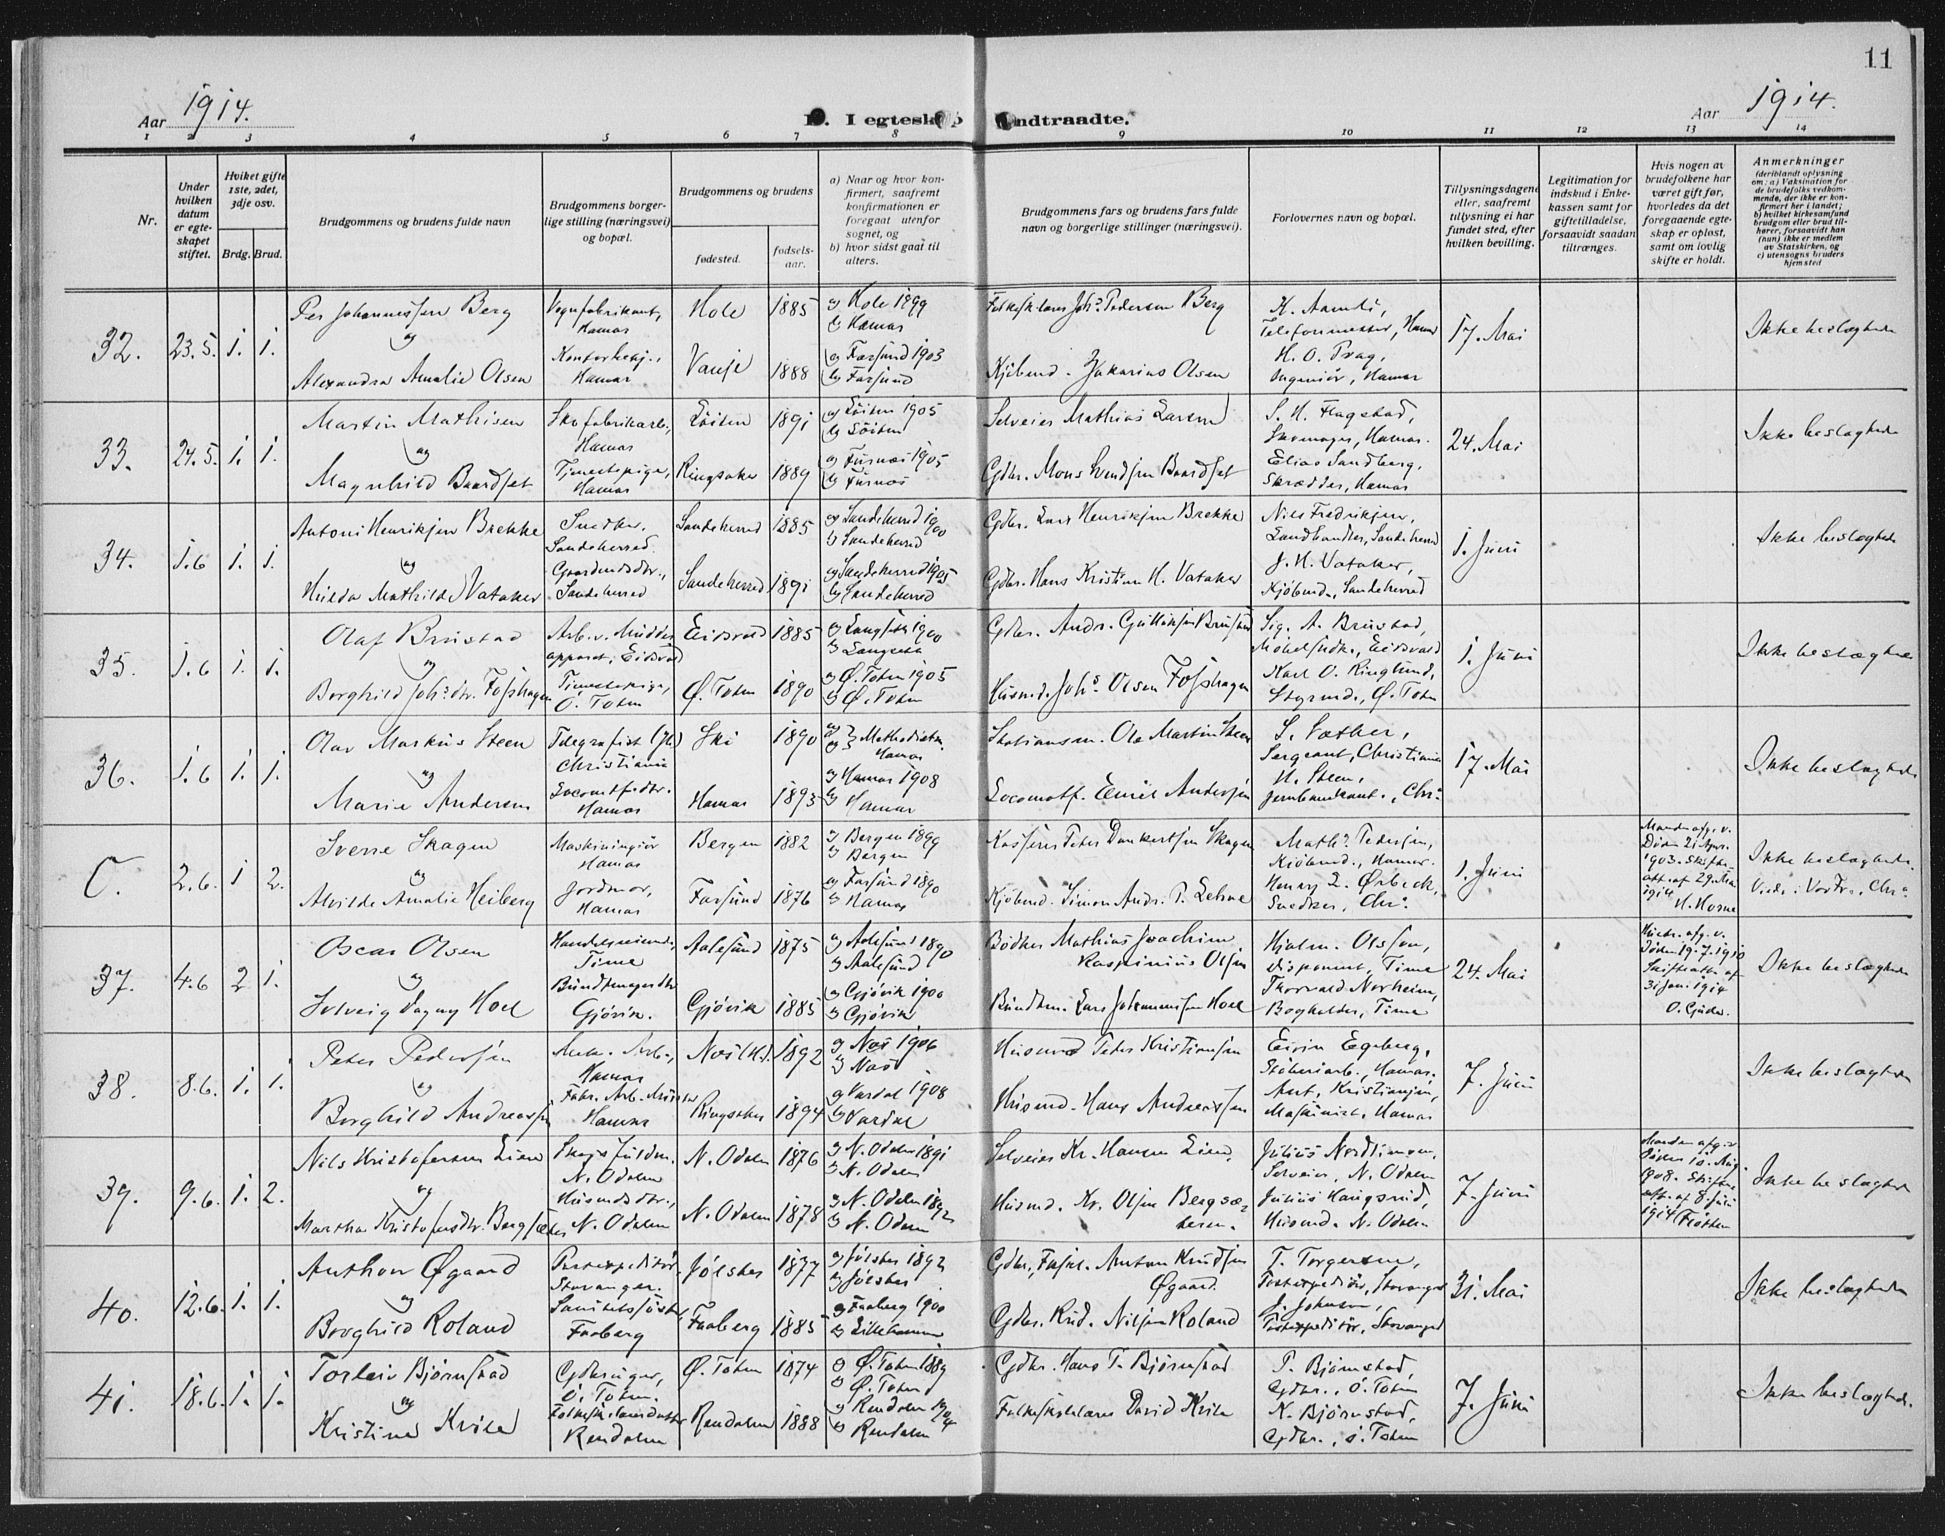 11
Aar 1914.
D. I egteska
indtraadte.
Aar 1914.
1 2 3 4 5 6 7 8 9 10 11 12 13 14
Nr.
Under hvilken datum er egteskapet stiftet.
Hviket gifte 1ste, 2det, 3dje osv.
Brdg. Brud.
Brudgommens og brudens fulde navn
Brudgommens borgerlige stilling (næringsvei) og bopæl.
Brudgommens og brudens
fødested.
fødselsaar.
a) Naar og hvor konfirmert, saafremt konfirmationen er foregaat utenfor sognet, og
b) hvor sidst gaat til alters.
Brudgommens fars og brudens fars fulde navn og borgerlige stillinger (næringsvei).
Forlovernes navn og bopæl.
Tillysningsdagene eller, saafremt tillysning ei har fundet sted, efter hvilken bevilling.
Legitimation for indskud i Enkekassen samt for giftetilladelse, forsaavidt saadan tiltrænges.
Hvis nogen av brudefolkene har været gift før, hvorledes da det foregaaende egteskap er opløst, samt om lovlig skifte er holdt.
Anmerkninger (deriblandt oplysning om: a) Vaksination for de brudefolks vedkommende, der ikke er konfirmert her i landet; b) hvilket kirkesamfund brudgom eller brud tilhører, forsaavidt han (hun) ikke er medlem av Statskirken, og c) utensogns bruders hjemsted
32. 23.5. 1. 1.
Per Johannessen Berg
og
Alexandra Amalie Olsen
Vognfabrikant, Hamar
Kontorbestj., Hamar
Hole 1885
Vanse 1888
a) Hole 1899
b) Hamar
a) Farsund 1903
b) Farsund
Folkeskolelærer Johs. Pedersen Berg
Kjøbmd. Zakarias Olsen
H. Aamli,
Telefonmester, Hamar
H. O. Prag,
Ingeniør, Hamar
17. Mai
Ikke beslægtede
33. 24.5. 1. 1.
Martin Mathisen
og
Magnhild Baardset
Skofabrikarb., Hamar
Tjenestepige, Hamar
Løiten 1891
Ringsaker 1889
a) Løiten 1905
b) Løiten
a) Furnes 1905
b) Furnes
Selveier Mathias Larsen
Gdbr. Mons Svendsen Baardset
S. H. Flagstad,
Skomager, Hamar.
Elias Sandberg,
Skrædder, Hamar
24. Mai
Ikke beslægtede
34. 1.6 1. 1.
Antoni Henriksen Brekke
og
Hilda Mathilde Vataker
Snedker, Sandeherred.
Gaardmdsdtr., Sandeherred
Sandeherred 1885
Sandeherred 1891
a) Sandeherred 1900
b) Sandeherred
a) Sandeherred 1905
b) Sandeherred
Gdbr. Lars Henriksen Brekke
Gdbr. Hans Kristian H. Vataker
Nils Fredriksen,
Landhandler, Sandeherred
J. H. Vataker,
Kjøbmd., Sandeherred
1. Juni
Ikke beslægtede
35. 1.6 1. 1.
Olaf Brustad
og
Borghild Johs.dtr. Fosshagen
Arb. v. Mudderapparat, Eidsvold
Tjenestepige, Ø. Toten
Eidsvold 1885
Ø. Toten 1890
a) Langset 1900
b) Langset
a) Ø. Toten 1905
b) Ø. Toten
Gdbr. Andr. Gulliksen Brustad
Husmd. Johs. Olsen Fosshagen
Sig. A. Brustad,
Møbelsndk., Eidsvold
Karl O. Ringlund,
Styrmd., Ø. Toten
1. Juni
Ikke beslægtede
36. 1.6 1. 1.
Olav Markus Steen
og
Marie Andersen
Telegrafist, Christiania
Locomotfdtr. Hamar
Ski 1890
Hamar 1893
a) b) Methodistm. Hamar
a) Hamar 1908
b) Hamar
Stationsm. Ole Martin Steen
Locomotf. Emil Andersen
S. Sæther,
Sergeant, Christiania
H. Steen,
Jernbanekont., Chr.a
17. Mai
Ikke beslægtede
C. 2.6. 1 2.
Sverre Skagen
og
Alvilde Amalie Heiberg
Maskiningiør Hamar
Jordmor, Hamar
Bergen 1882
Farsund 1876
a) Bergen 1899
b) Bergen
a) Farsund 1890
b) Hamar
Kasserer Peter Dankertsen Skagen
Kjøbmd. Simon Andr. P. Lehne
Maths. Pedersen,
Kjøbmd., Hamar.
Henry L. Ørbeck,
Snedker, Chr.a
1. Juni
Manden afg. v. Døden 21 Apr. 1903. Skifteatt. af 29. Mai 1914
Ikke beslægtede
Viede i Vor Fr., Chr.a
37. 4.6 2 1.
Oscar Olsen
og
Solveig Dagny Hoel
Handelsreisende, Time
Bundtmagerdtr. Gjøvik.
Aalesund 1875
Gjøvik 1885
a) Aalesund 1890
b) Aalesund
a) Gjøvik 1900
b) Gjøvik
Bødker Mathias Joachim Kaspinius Olsen
Bundtm. Lars Johannessen Hoel
Hjalm. Olsson,
Disponent, Time
Thorvald Norheim,
Bogholder, Time
24. Mai
Hustr. afg. v. Døden 19.7.1910 Skifteatt. af 31 Jan. 1914
Ikke beslægtede
38. 8.6. 1. 1.
Peter Pedersen
og
Borghild Andreassen
Hamar
Fabr. Arb. Hamar
Nes (H.) 1892
Ringsaker 1894
a) Nes 1906
b) Nes
a) Vardal 1908
b) Vardal
Husmd Peder Kristiansen
Husmd. Hans Andreassen
Eivin Egeberg,
Støberiarb., Hamar.
Ant. Kristiansen,
Maskinist, Hamar
7. Juni
Ikke beslægtede
39. 9.6. 1. 2.
Nils Kristofersen Lien
og
Martha Kristofersdtr. Bergsæter
N. Odalen
Husmdsdtr., N. Odalen
N. Odalen 1876
N. Odalen 1878
a) N. Odalen 1891
b) N. Odalen
a) N. Odalen 1892
b) N. Odalen
Selveier Kr. Hansen Lien
Husmd. Kr. Olsen Bergsæteren.
Julius Nordtimon,
Selveier, N. Odalen
Julius Haugsrud,
Husmd. N. Odalen
7. Juni
Manden afg. v. Døden 10. Aug. 1908. Skifteatt. af 8 Juni 1914
Ikke beslægtede
40. 12.6. 1. 1.
Anthon Øgaard
og
Borghild Roland
Postexpeditør, Stavanger.
Sanitetssøster, Faaberg
Jølster 1877
Faaberg 1885
a) Jølster 1892
b) Jølster
a) Faaberg 1900
b) Lillehammer
Anton Knudsen Øgaard.
Gdbr. Krid. Nilsen Roland
T. Torgersen,
Postexpeditør, Stavanger
J. Johnsen,
Postexpeditør, Stavanger
31. Mai
Ikke beslægtede
41. 18.6. 1. 1.
Torleiv Bjørnstad
og
Kristine Kvile
Gdbruger, Ø. Toten.
Folkeskolelærerdatter Rendalen
Ø. Toten 1874
Rendalen 1888
a) Ø. Toten 1889
b) Ø. Toten
a) Rendalen 1904
b) Rendalen
Gdbr. Hans T. Bjørnstad
Folkeskolelærer David Kvile
P. Bjørnstad,
Gdbr., Ø. Toten
N. Bjørnstad,
Gdbr., Ø. Toten
7. Juni
Ikke beslægtede.